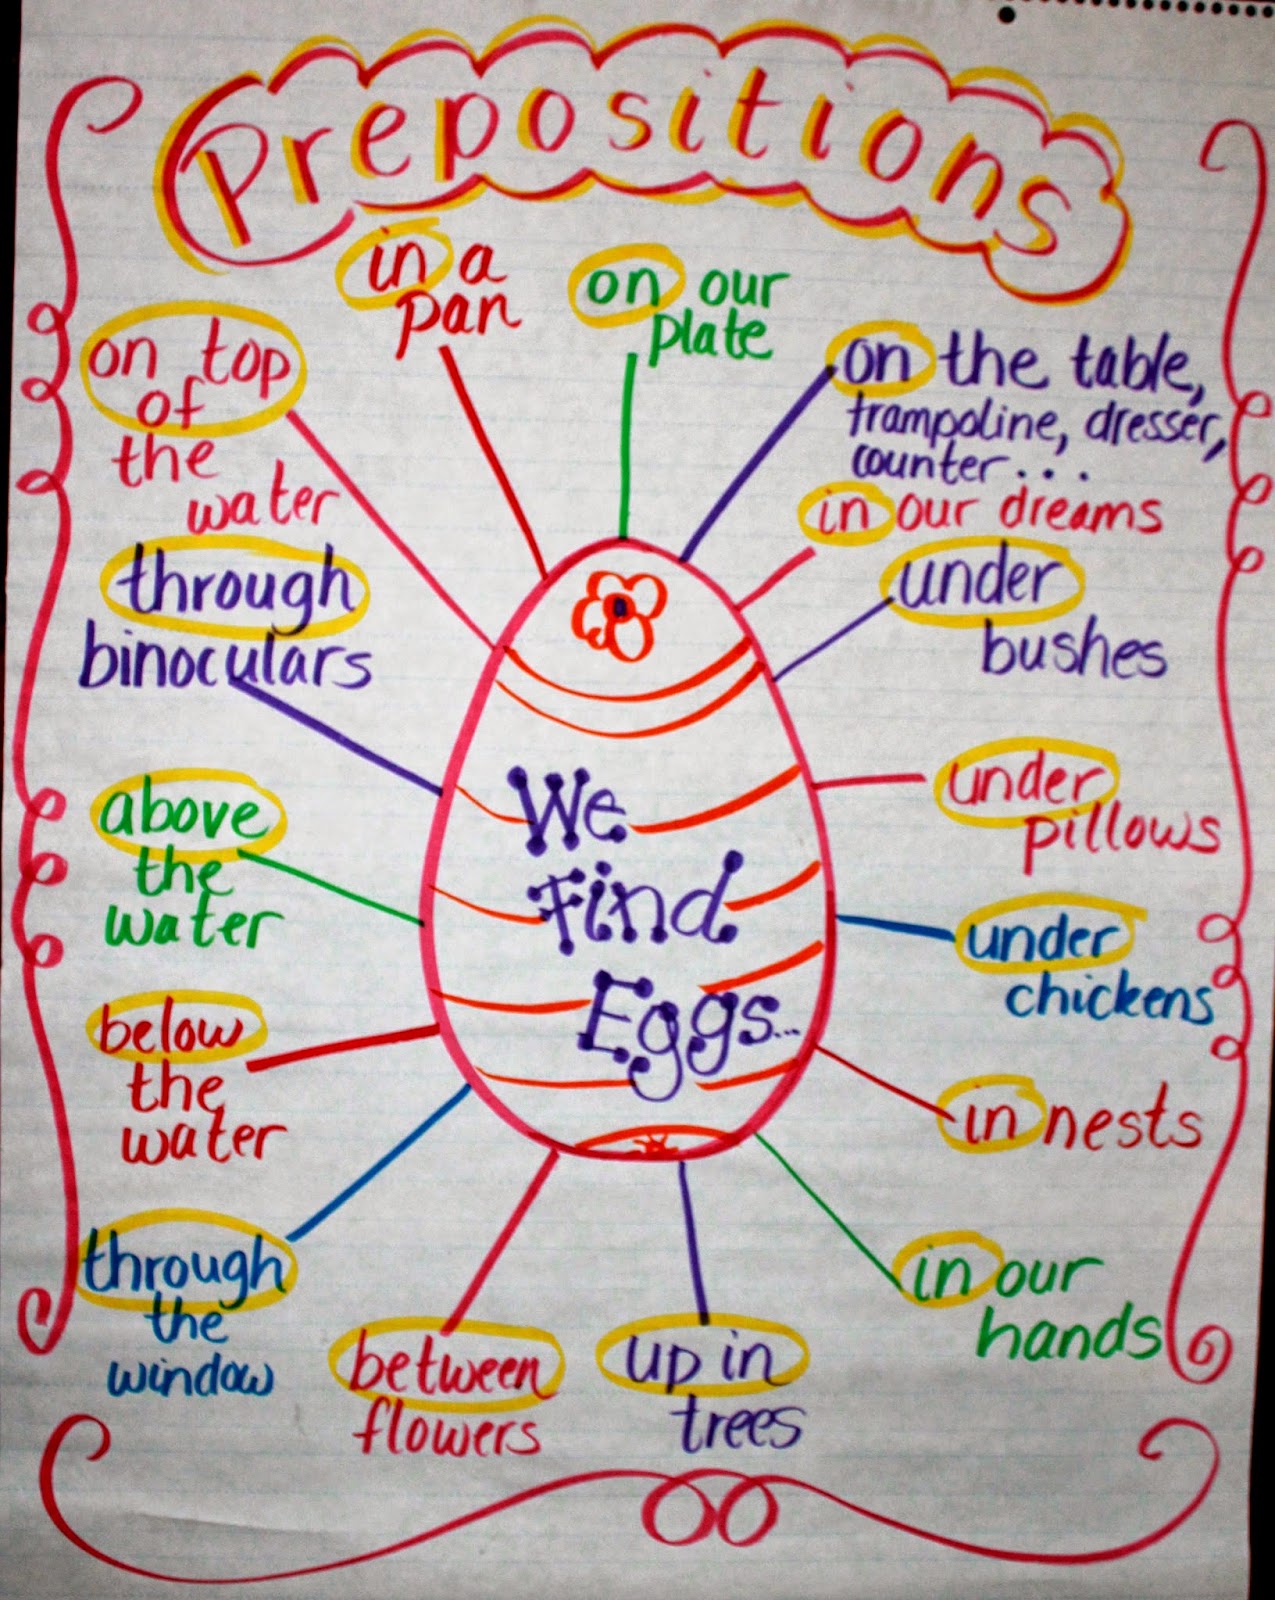 Prepositions
in a
pan
on our
plate
on the table,
trampoline, dresser,
counter...
in our dreams
under
bushes
under
pillows
under
chickens
in nests
in our
hands
up in
trees
between
flowers
through
the
window
below
the
water
above
the
water
through
binoculars
on top
of
the
water
We
Find
Eggs...